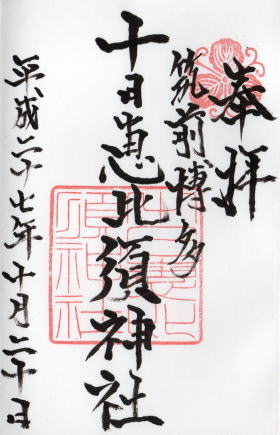 奉拝
筑前博多
十日恵比須神社
平成二十七年十月二十日